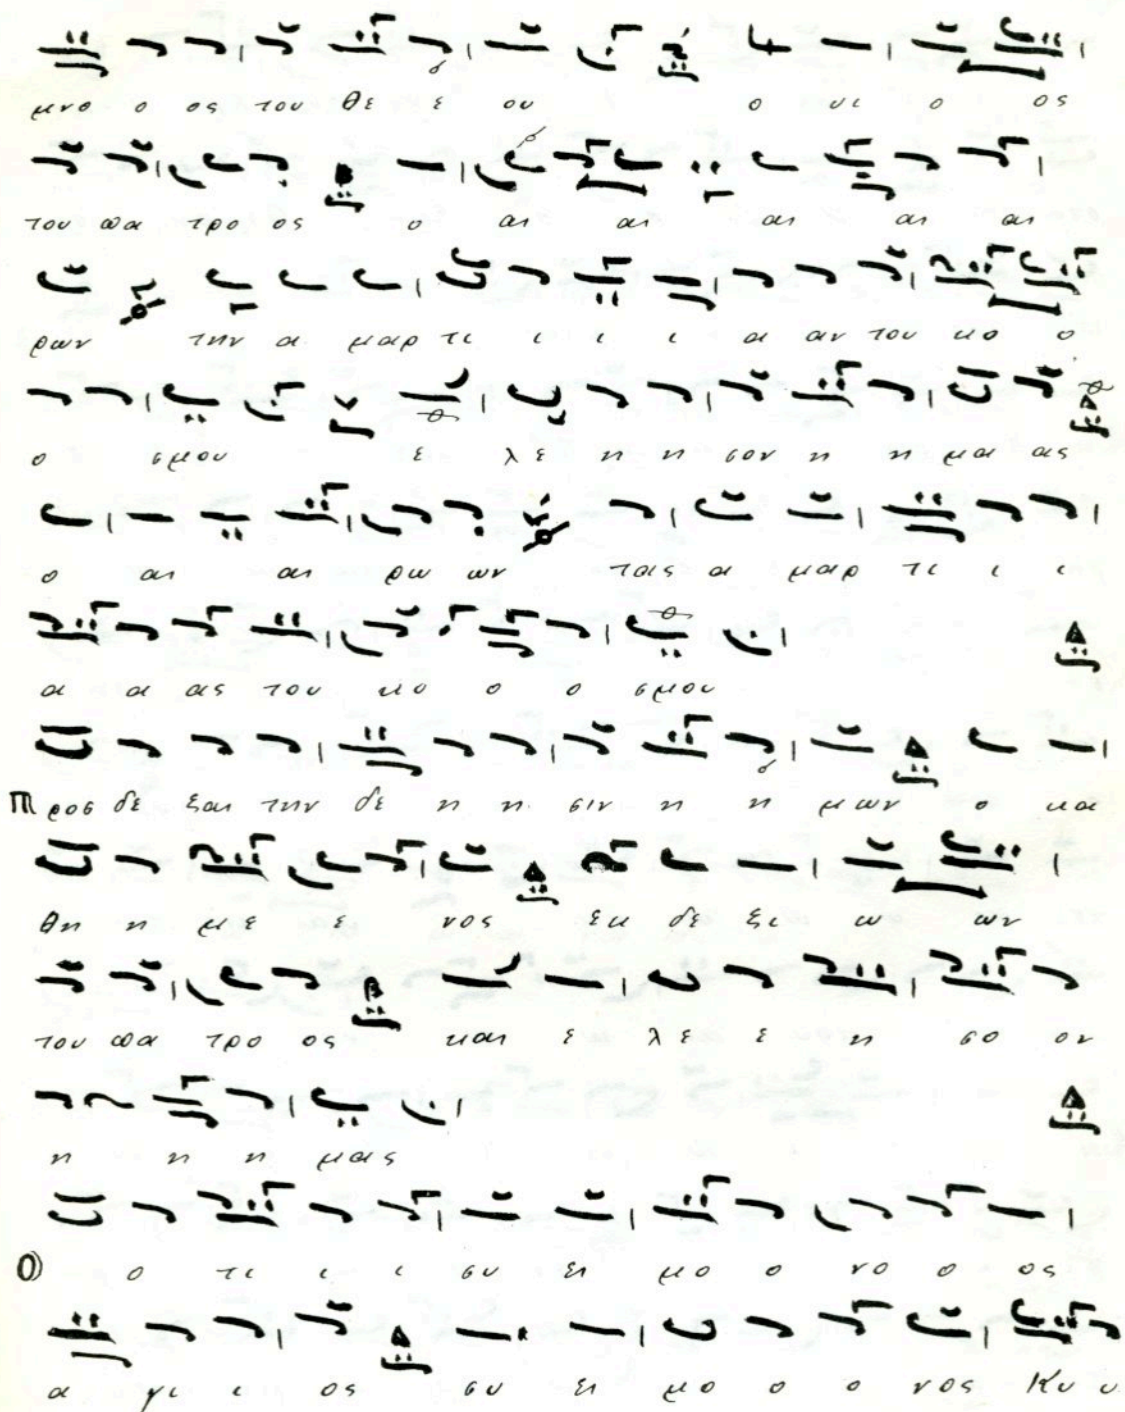 μνο ο ος του θε ε ου ο υι ο ος
του πα τρο ος ο αι αι αι αι αι
ρων την α μαρ τι ι ι ι α αν του κο ο
ο σμου ε λε η η σον η η μα ας
ο αι αι ρω ων τας α μαρ τι ι ι
α α ας του κο ο ο σμου
Προσ δε ξαι την δε η η σιν η η μων ο κα
θη η με ε νος εκ δε ξι ω ων
του πα τρο ος και ε λε ε η σο ον
η η η μας
Ο ο τι ι ι συ ει μο ο νο ο ος
α γι ι ος συ ει μο ο ο νος Κυ υ